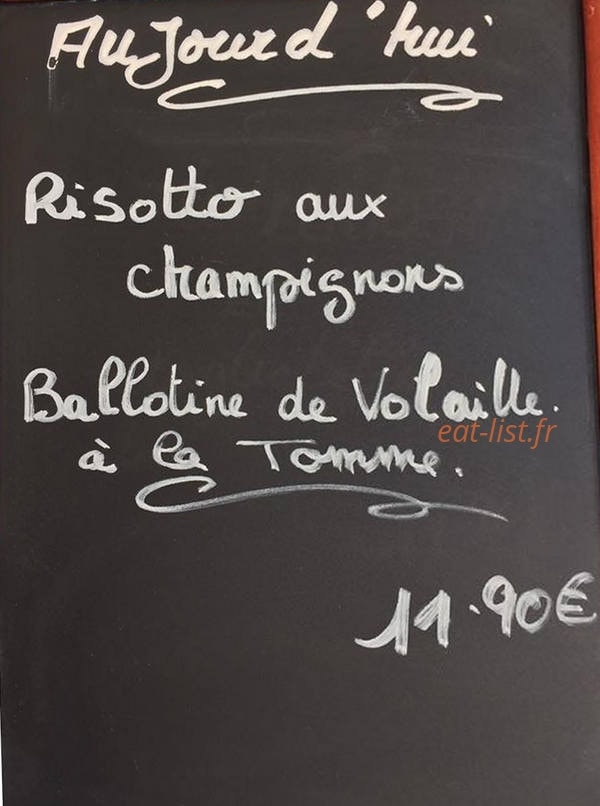 Aujourd'hui
Risotto aux
champignons
Ballotine de Volaille.
eat-list.fr
à la Tomme.
11.90€